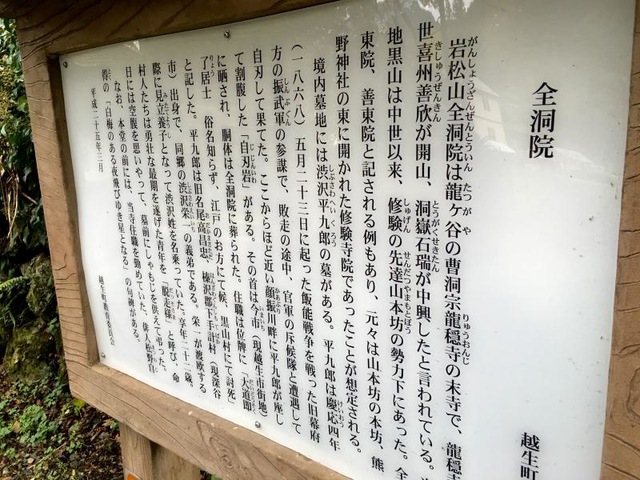 全洞院
越生町
岩松山全洞院は龍ヶ谷の曹洞宗龍穏寺の末寺で、龍穏
世喜州善欣が開山、洞嶽石瑞が中興したと言われている。
地黒山は中世以来、修験の先達山本坊の勢力下にあった。全
東院、善東院と記される例もあり、元々は山本坊の本坊、熊
野神社の東に開かれた修験寺院であったことが想定される。
境内墓地には渋沢平九郎の墓がある。平九郎は慶応四年
(一八六八)五月二十三日に起った飯能戦争を戦った旧幕府
方の振武軍の参謀で、敗走の途中、官軍の斥候隊と遭遇して
自刃して果てた。ここからほど近い顔振川畔に平九郎が座し
て割腹した「自刃岩」がある。その首は今市(現越生市街地)
に晒され、胴体は全洞院に葬られた。住職は位牌に「大道即
了居士 俗名知らず、江戸のお方にて候、黒山村にて討死」
と記した。平九郎は旧名尾高昌忠、榛沢郡下手計村(現深谷
市)出身で、同郷の渋沢栄一の義弟である。栄一が渡欧する
際に見立養子となって渋沢姓を名乗っていた。享年二十二歳。
村人たちは勇壮な最期を遂げた青年を「脱走様」と呼び、命
日には空腹を思いやって、墓前にしゃもじを供えて弔った。
なお、本堂の前には、当寺住職を勤めていた、俳人松野自
得の「白梅のある夜飛びゆき星となる」の句碑がある。
平成二十五年三月
越生町教育委員会